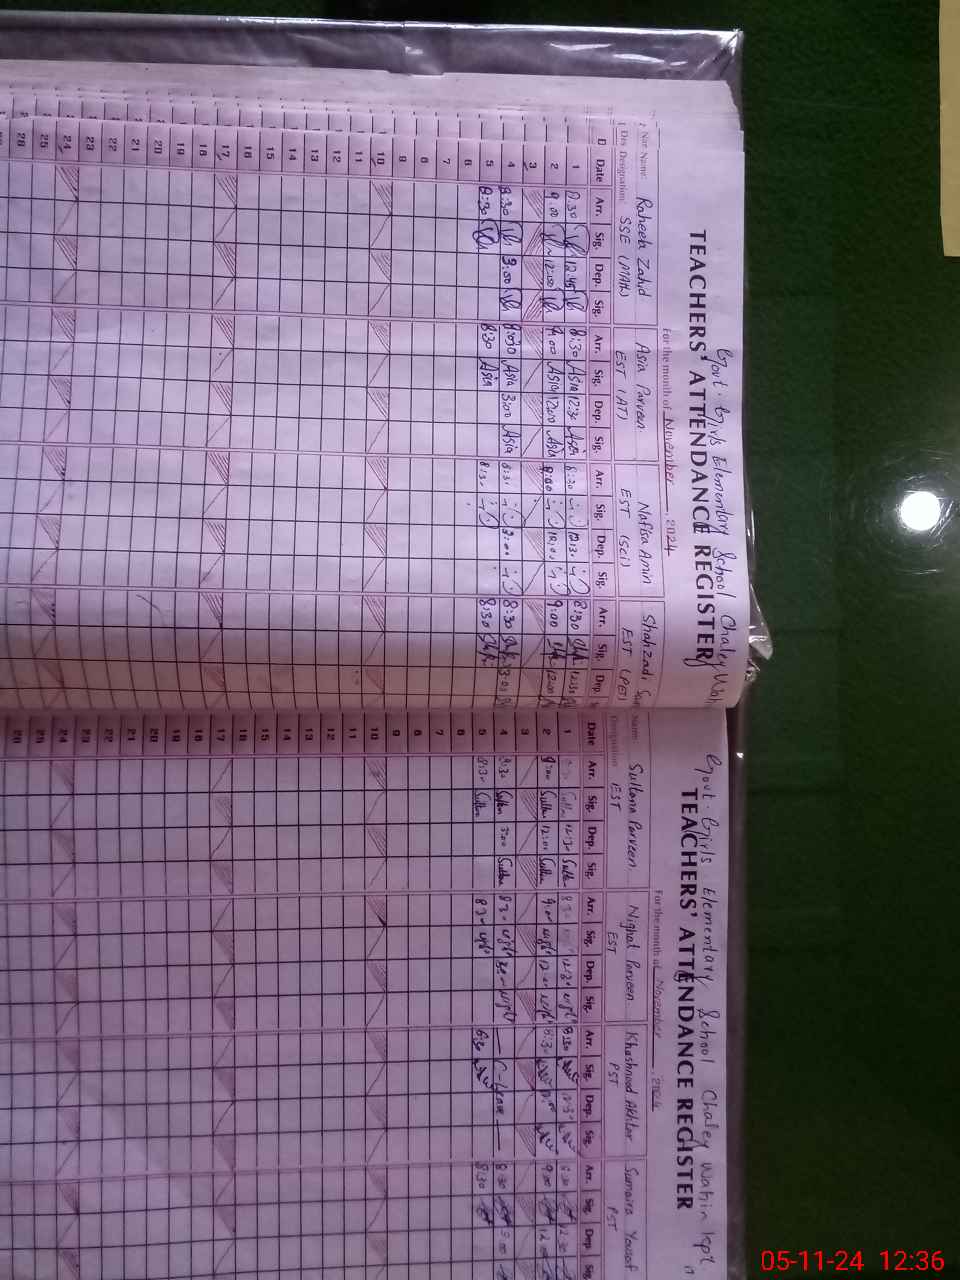 Govt. Girls Elementary School Chaley Wahn
TEACHERS' ATTENDANCE REGISTER
For the month of November, 2024
Name: Raheela Zahid Asia Parveen Nafisa Amin Shahzadi
Designation: SSE (Math) EST (AT) EST (Sci) EST (PET)
Date Arr. Sig. Dep. Sig. Arr. Sig. Dep. Sig. Arr. Sig. Dep. Sig. Arr. Sig. Dep.
1 8:30 12:45 8:30 Asia 12:30 Asia 8:30 12:30 8:30 12:30
2 9:00 12:00 9:00 Asia 12:00 Asia 9:00 12:00 9:00 12:00
3
4 8:30 3:00 8:30 Asia 3:00 Asia 8:30 3:00 8:30 3:00
5 8:30 8:30 Asia 8:30 8:30
6
7
8
9
10
11
12
13
14
15
16
17
18
19
20
21
22
23
24
25
26
Govt. Girls Elementary School Chaley Wahn kpt
TEACHERS' ATTENDANCE REGISTER
For the month of November, 2024
Name: Sultana Parveen Nighat Parveen Khashnood Akhtar Sumaira Yousaf
Designation EST EST PST PST
Date Arr. Sig. Dep. Sig. Arr. Sig. Dep. Sig. Arr. Sig. Dep. Sig. Arr. Sig. Dep. Sig.
1 8:30 12:30 8:30 12:30 8:30 12:30 8:30 12:30
2 9:00 12:00 9:00 12:00 8:30 12:00 9:00 12:00
3
4 8:30 3:00 8:30 3:00 C-Leave 8:30 3:00
5 8:30 8:30 8:30 8:30
6
7
8
9
10
11
12
13
14
15
16
17
18
19
20
21
22
23
24
25
26
05-11-24 12:36